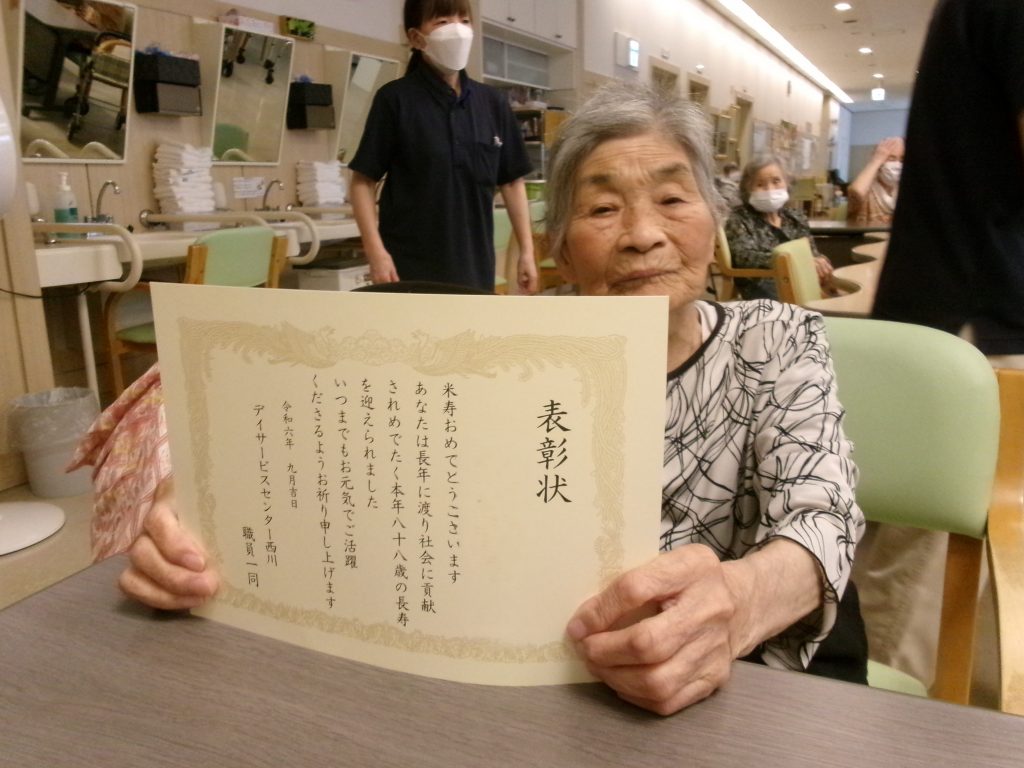 表彰状
米寿おめでとうございます
あなたは長年に渡り社会に貢献
されめでたく本年八十八歳の長寿
を迎えられました
いつまでもお元気でご活躍
くださるようお祈り申し上げます
令和六年 九月吉日
デイサービスセンター西川
職員一同